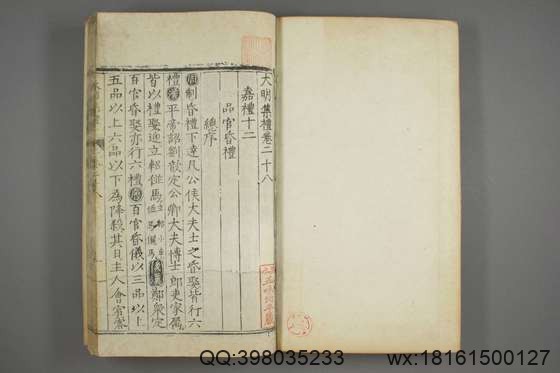 大明集禮卷二十八
嘉禮十二
品官昏禮
總序
周制昏禮下達凡公侯大夫士之昏娶皆行六
禮漢平帝詔劉歆定公卿大夫博士郎吏家屬
皆以禮娶迎立軺併馬鄭衆定
百官昏娶亦行六禮百官昏儀以三品以上
五品以上六品以下為降殺其日主人會賓
QQ:398035233
wx:18161500127